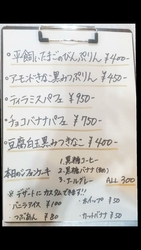 ◦平飼いたまごのびんぷりん ¥400-
◦アーモンドきなこ黒みつぷりん ¥450-
◦ティラミスパフェ ¥950-
◦チョコバナナパフェ ¥750-
◦豆腐白玉黒みつきなこ ¥400
本日のシフォンケーキ
1. 黒糖コーヒー
2. 黒糖バナナ
3. アールグレー ALL 300
※ デザートにカスタムできます!!
バニラアイス ¥100
ホイップ ¥50
つぶあん ¥80
カットバナナ ¥50